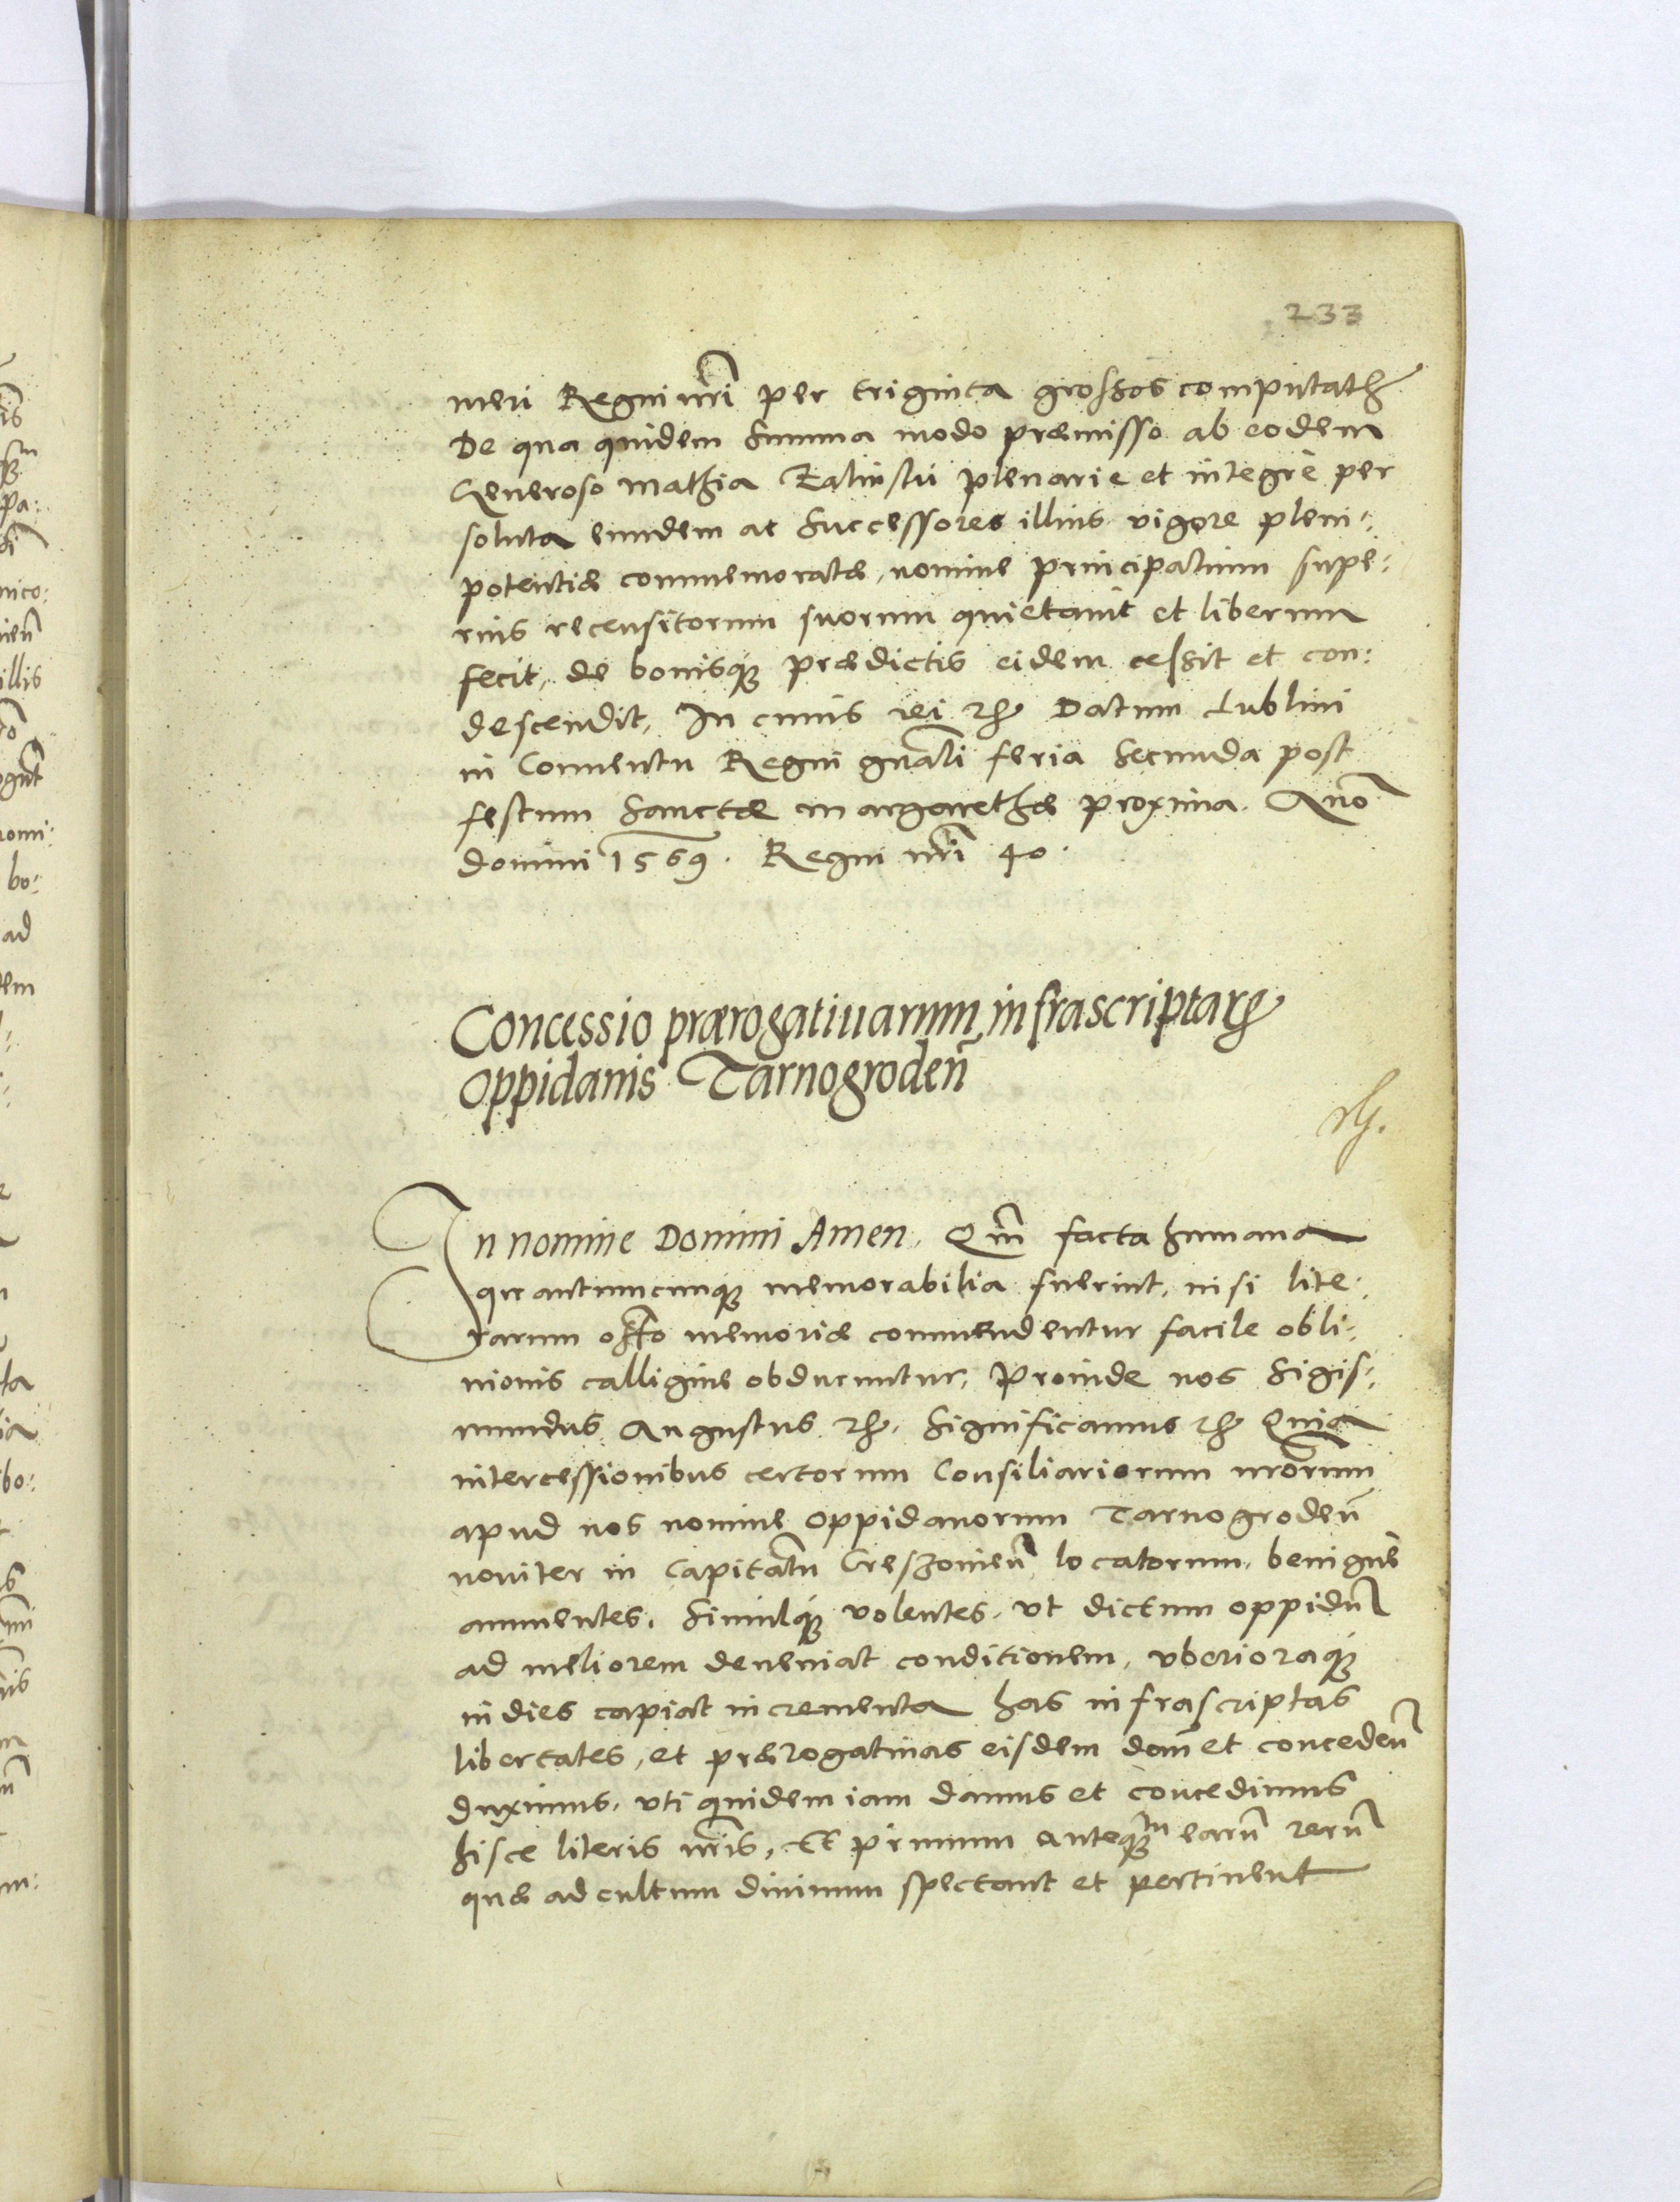 233
meri Regni nr̃i per triginta grossos computatꝝ
De qua quidem summa modo præmisso ab eodem
Generoso Mathia Zalinski plenarie et integrè per
soluta eundem ac Successores illius vigore pleni:
potentiæ commemoratæ, nomine principatuum supe:
rius recensitorum suorum quietavit et liberum
fecit, de bonisq₃ prædictis eidem cessit et con:
descendit, In cuius rei ꝛc̃ Datum Lublini
in Conventu Regni gnãli feria Secunda post
festum Sanctæ Margarethæ proxima. Anõ
domini 1569. Regni nr̃i 40.
Concessio prærogativarum infrascriptarꝝ
Oppidanis Tarnogrodeñ
In nomine Domini Amen, Qm̃ facta humana
quantumcunq₃ memorabilia fuerint, nisi lite:
rarum memoriæ commendentur facile obli:
vionis calligine obducuntur, Proinde nos Sigis:
mundus Augustus ꝛc̃. Significamus ꝛc̃ Quia
intercessionibus certorum Consiliariorum nrõrum
apud nos nomine oppidanorum Tarnogrodeñ
noviter in Capitatũ Creszovieñ locatorum, benignè
annuentes, Simulq₃ volentes, vt dictum oppidũ
ad meliorem deveniat conditionem, vberioraq₃
in dies capiat incrementa has infrascriptas
libertates, et prærogativas eisdem dañ et concedeñ
duximus, vti quidem iam damus et concedimus
hisce literis nr̃is, Et primum anteq₃m earũ rerũ
quæ ad cultum divinum spectant et pertinent